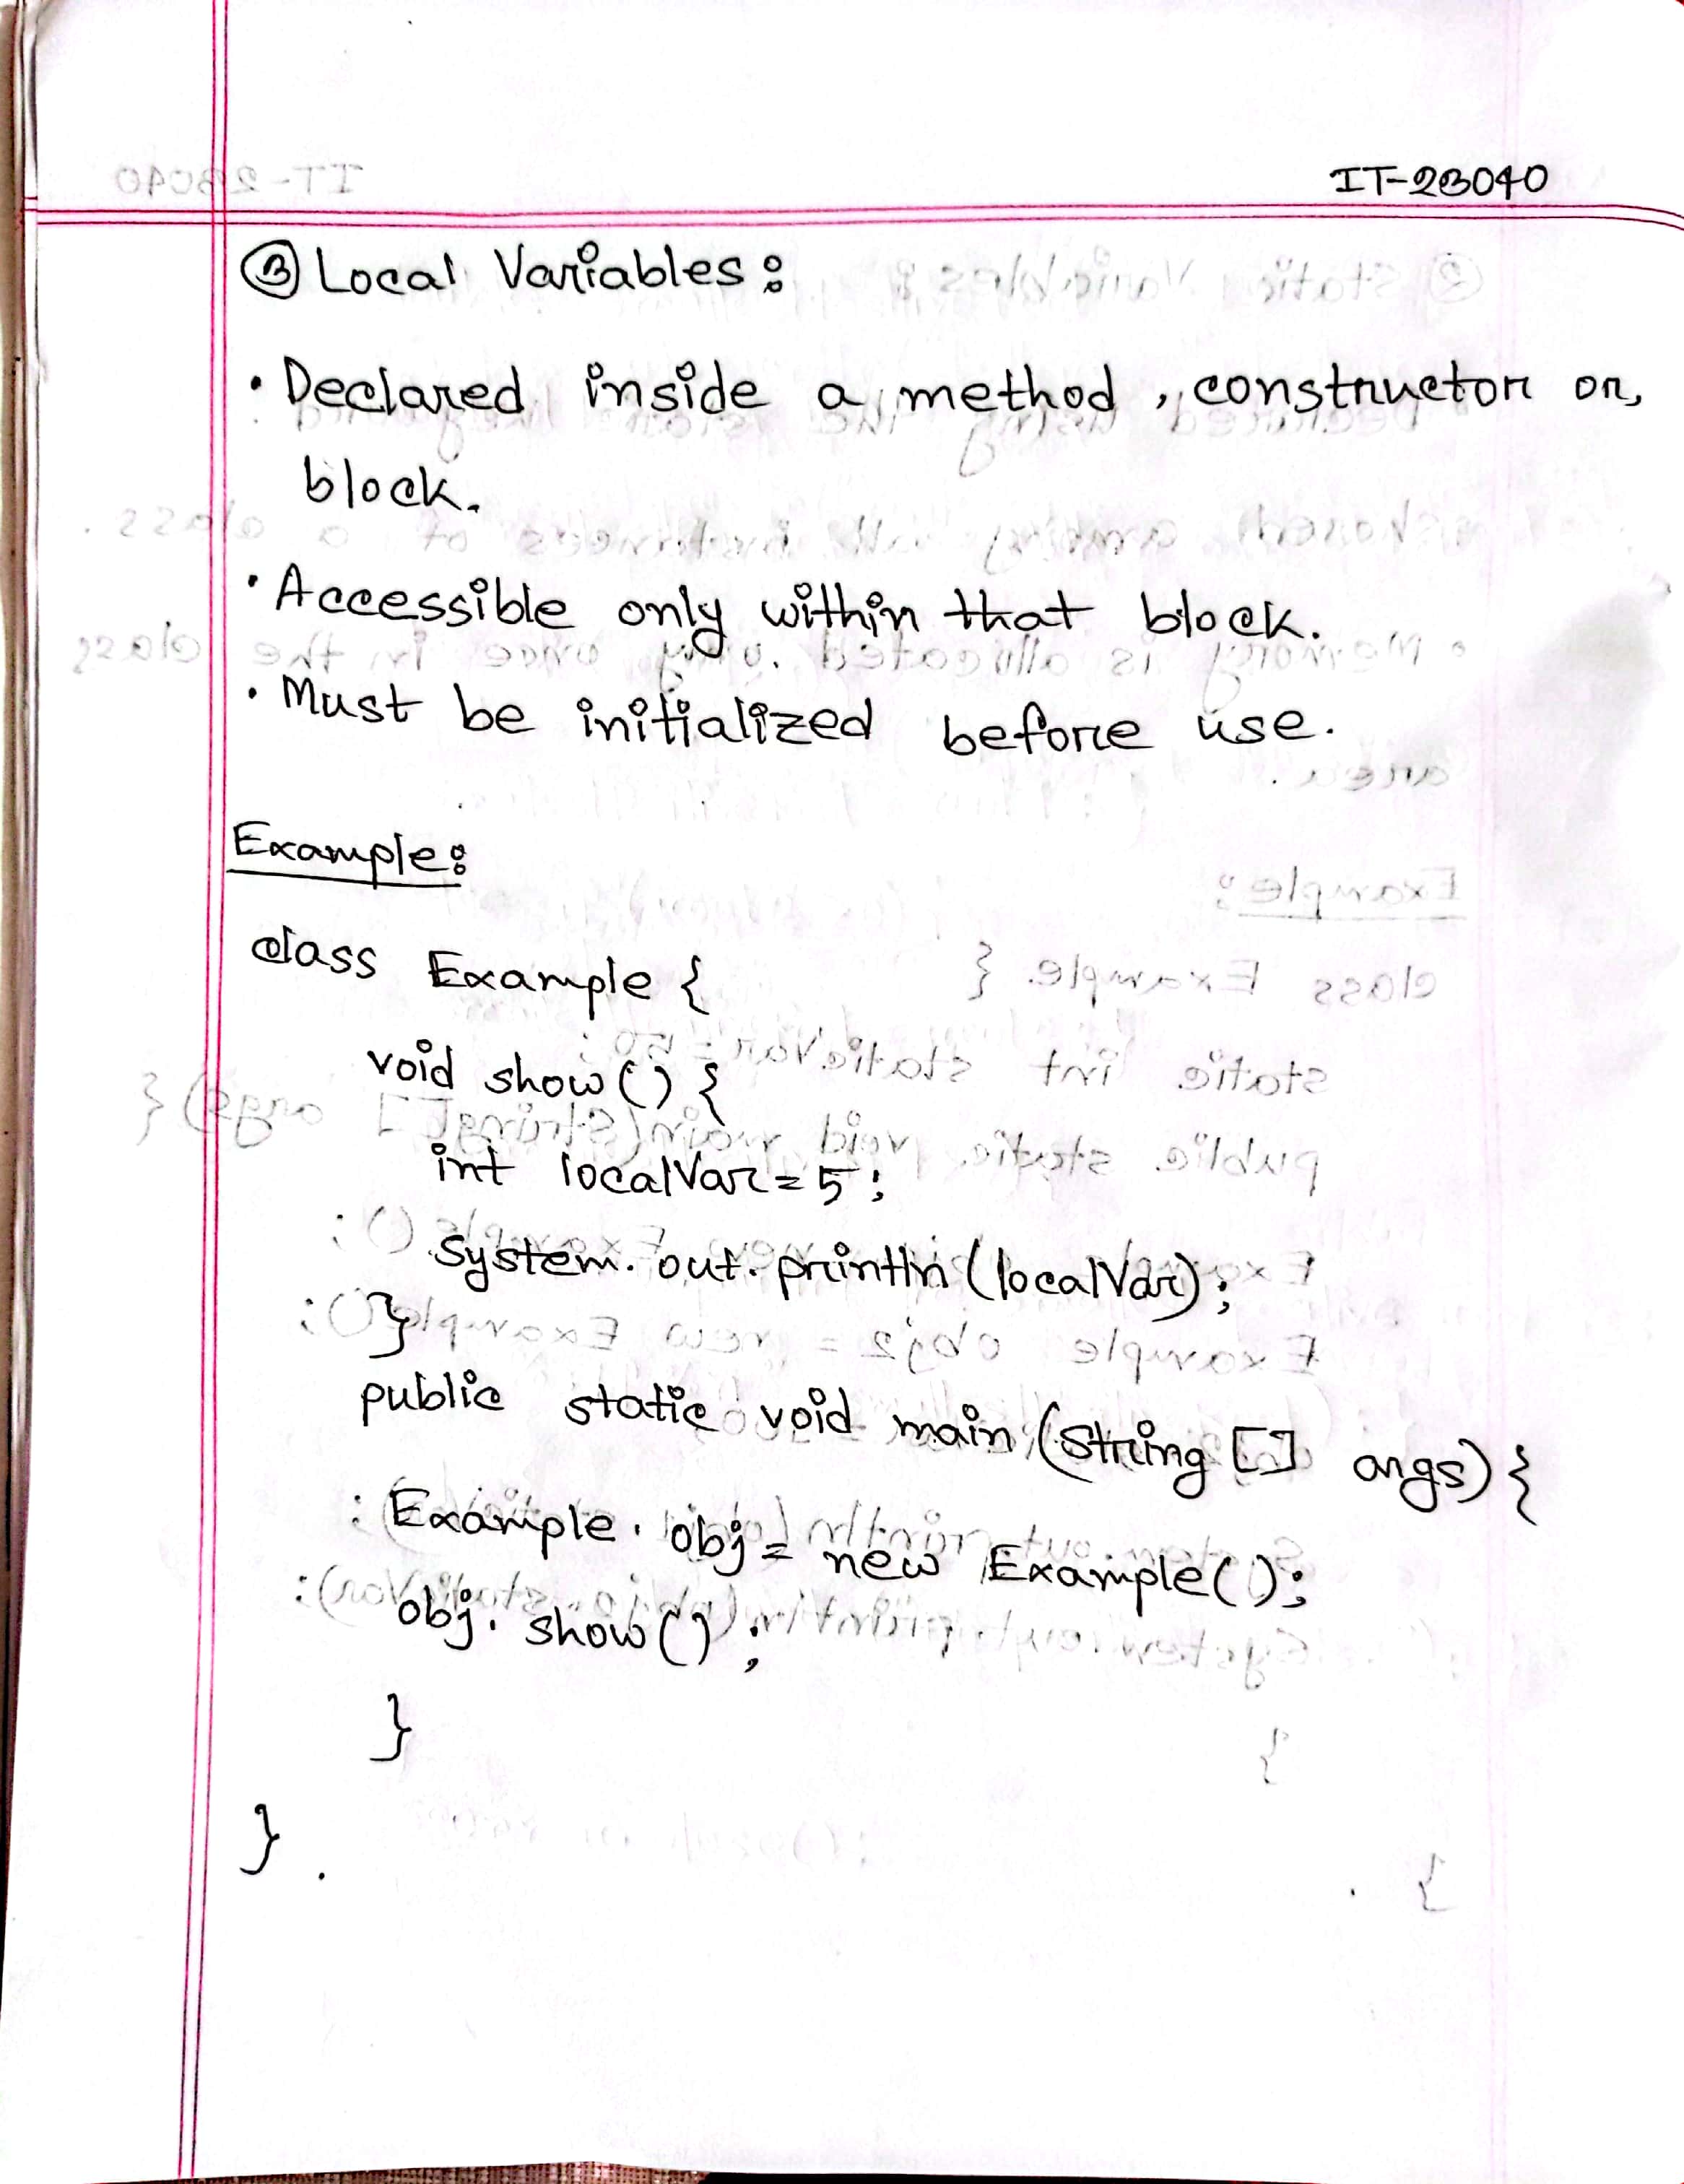 IT-23040
③ Local Variables:
• Declared inside a method, constructor or,
block.
• Accessible only within that block.
• Must be initialized before use.
Example:
class Example {
void show() {
int localVar = 5;
System.out.println(localVar);
}
public static void main(String [] args) {
Example obj = new Example();
obj.show();
}
}.